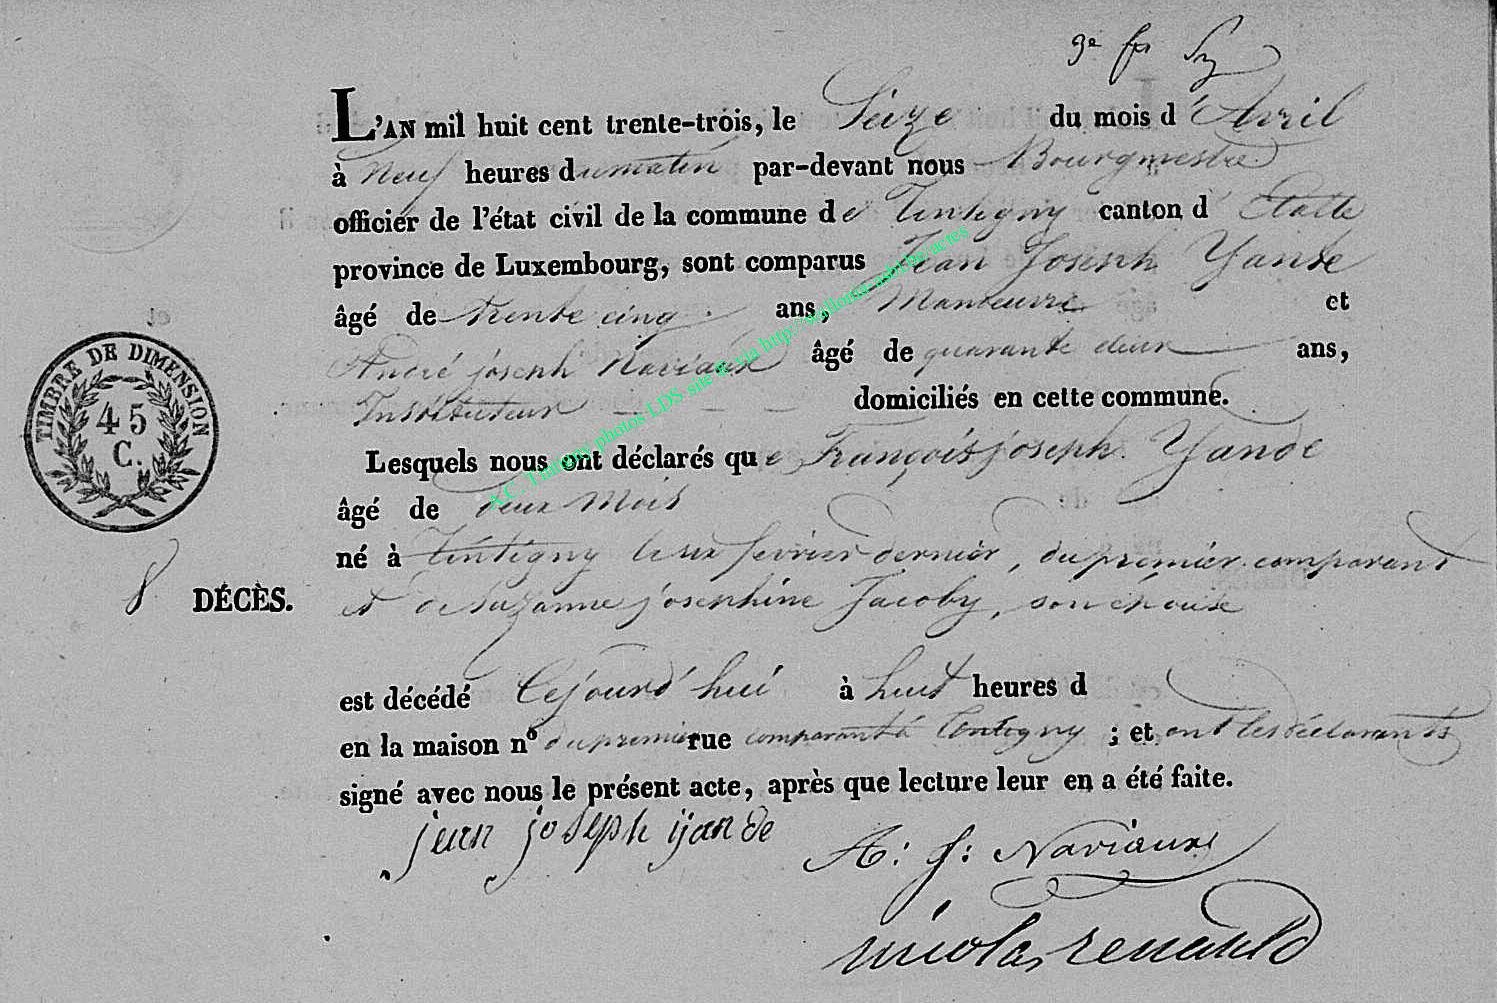 L'AN mil huit cent trente-trois, le Seize du mois d'Avril
à Neuf heures du matin par-devant nous Bourgmestre
officier de l'état civil de la commune de Tintigny canton d'Etalle
province de Luxembourg, sont comparus Jean Joseph Yande
âgé de trente cinq ans, Manœuvre et
André joseph Naviaux âgé de quarante deux ans,
Instituteur domiciliés en cette commune.
Lesquels nous ont déclarés que François joseph Yande
âgé de deux Mois
né à Tintigny le six fevrier dernier, du premier comparant
8 DÉCÈS. et de Suzanne josephine Jacoby, son epouse
est décédé Cejourd'hui à huit heures d
en la maison n° du premier rue comparant à Tintigny ; et ont les déclarants
signé avec nous le présent acte, après que lecture leur en a été faite.
jean joseph yande
A: J: Naviaux
nicolas renauld
TIMBRE DE DIMENSION
45
C.
A.C. Tintigny photos LDS site & via http://wallonia-asbl.be/actes